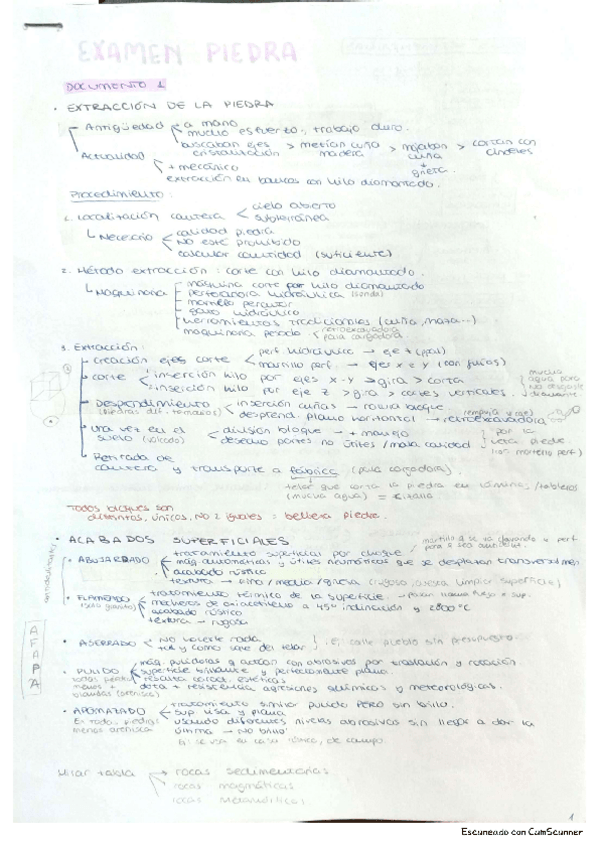 EXAMEN PIEDRA
DOCUMENTO 1
• EXTRACCIÓN DE LA PIEDRA
Antigüedad
a mano
mucho esfuerzo, trabajo duro.
buscaban ejes cristalización > metían cuña madera > mojaban cuña → grieta > cortan con cinceles
Actualidad
+ mecánico
extracción en bancos con hilo diamantado.
Procedimiento:
1. Localización cantera
cielo abierto
subterránea
Necesario
calidad piedra
NO esté prohibido
calcular cantidad (suficiente)
2. Método extracción: corte con hilo diamantado.
Maquinaria
máquina corte por hilo diamantado
perforadora hidráulica (sonda)
martillo percutor
gato hidráulico
herramientas tradicionales (cuña, maza...)
maquinaria pesada
retroexcavadora
pala cargadora
3. Extracción:
- creación ejes corte
perf. hidráulica → eje z (ppal)
martillo perf. → ejes x e y (con guías)
- corte
inserción hilo por ejes x-y > gira > corta
inserción hilo por eje z > gira > cortes verticales.
mucha agua para no desgaste diamante
- Desprendimiento
(piedras dif. tamaños)
inserción cuñas → rotura bloque.
desprend. plano horizontal → retroexcavadora
- una vez en el suelo (volcado)
división bloque → + manejo
desecho partes no útiles / mala calidad
por la veta piedra.
(con martillo perf)
- Retirada de cantera y transporte a fábrica (pala cargadora)
telar que corta la piedra en láminas/tableros
(mucha agua)
Todos bloques son
distintos, únicos, NO 2 iguales = belleza piedra.
• ACABADOS SUPERFICIALES
• ABUJARDADO
tratamiento superficial por choque
máq. automáticas y útiles neumáticos que se desplazan transversalmes
acabado rústico
textura → fina / media / gruesa
• FLAMEADO
(solo granito)
tratamiento térmico de la superficie.
mecheros de oxiacetileno a 45º inclinación y 2800 ºC
acabado rústico
textura → rugosa
AFAPA
• ASERRADO
NO hacerle nada
tal y como sale del telar
ej. calle pueblo sin presupuesto.
• PULIDO
todas piedras menos + blandas (arenisca)
máq. pulidoras q actúan con abrasivos por traslación y rotación
superficie brillante y perfectamente plana
resalta caract. estéticas
dota + resistencia agresiones químicas y meteorológicas.
• APOMAZADO
En todas piedras menos arenisca
tratamiento similar pulido PERO sin brillo.
sup. lisa y plana
usando diferentes niveles abrasivos sin llegar a dar la última → NO brillo
Mirar tabla
rocas sedimentarias
rocas magmáticas
rocas metamórficas
1
Escaneado con CamScanner